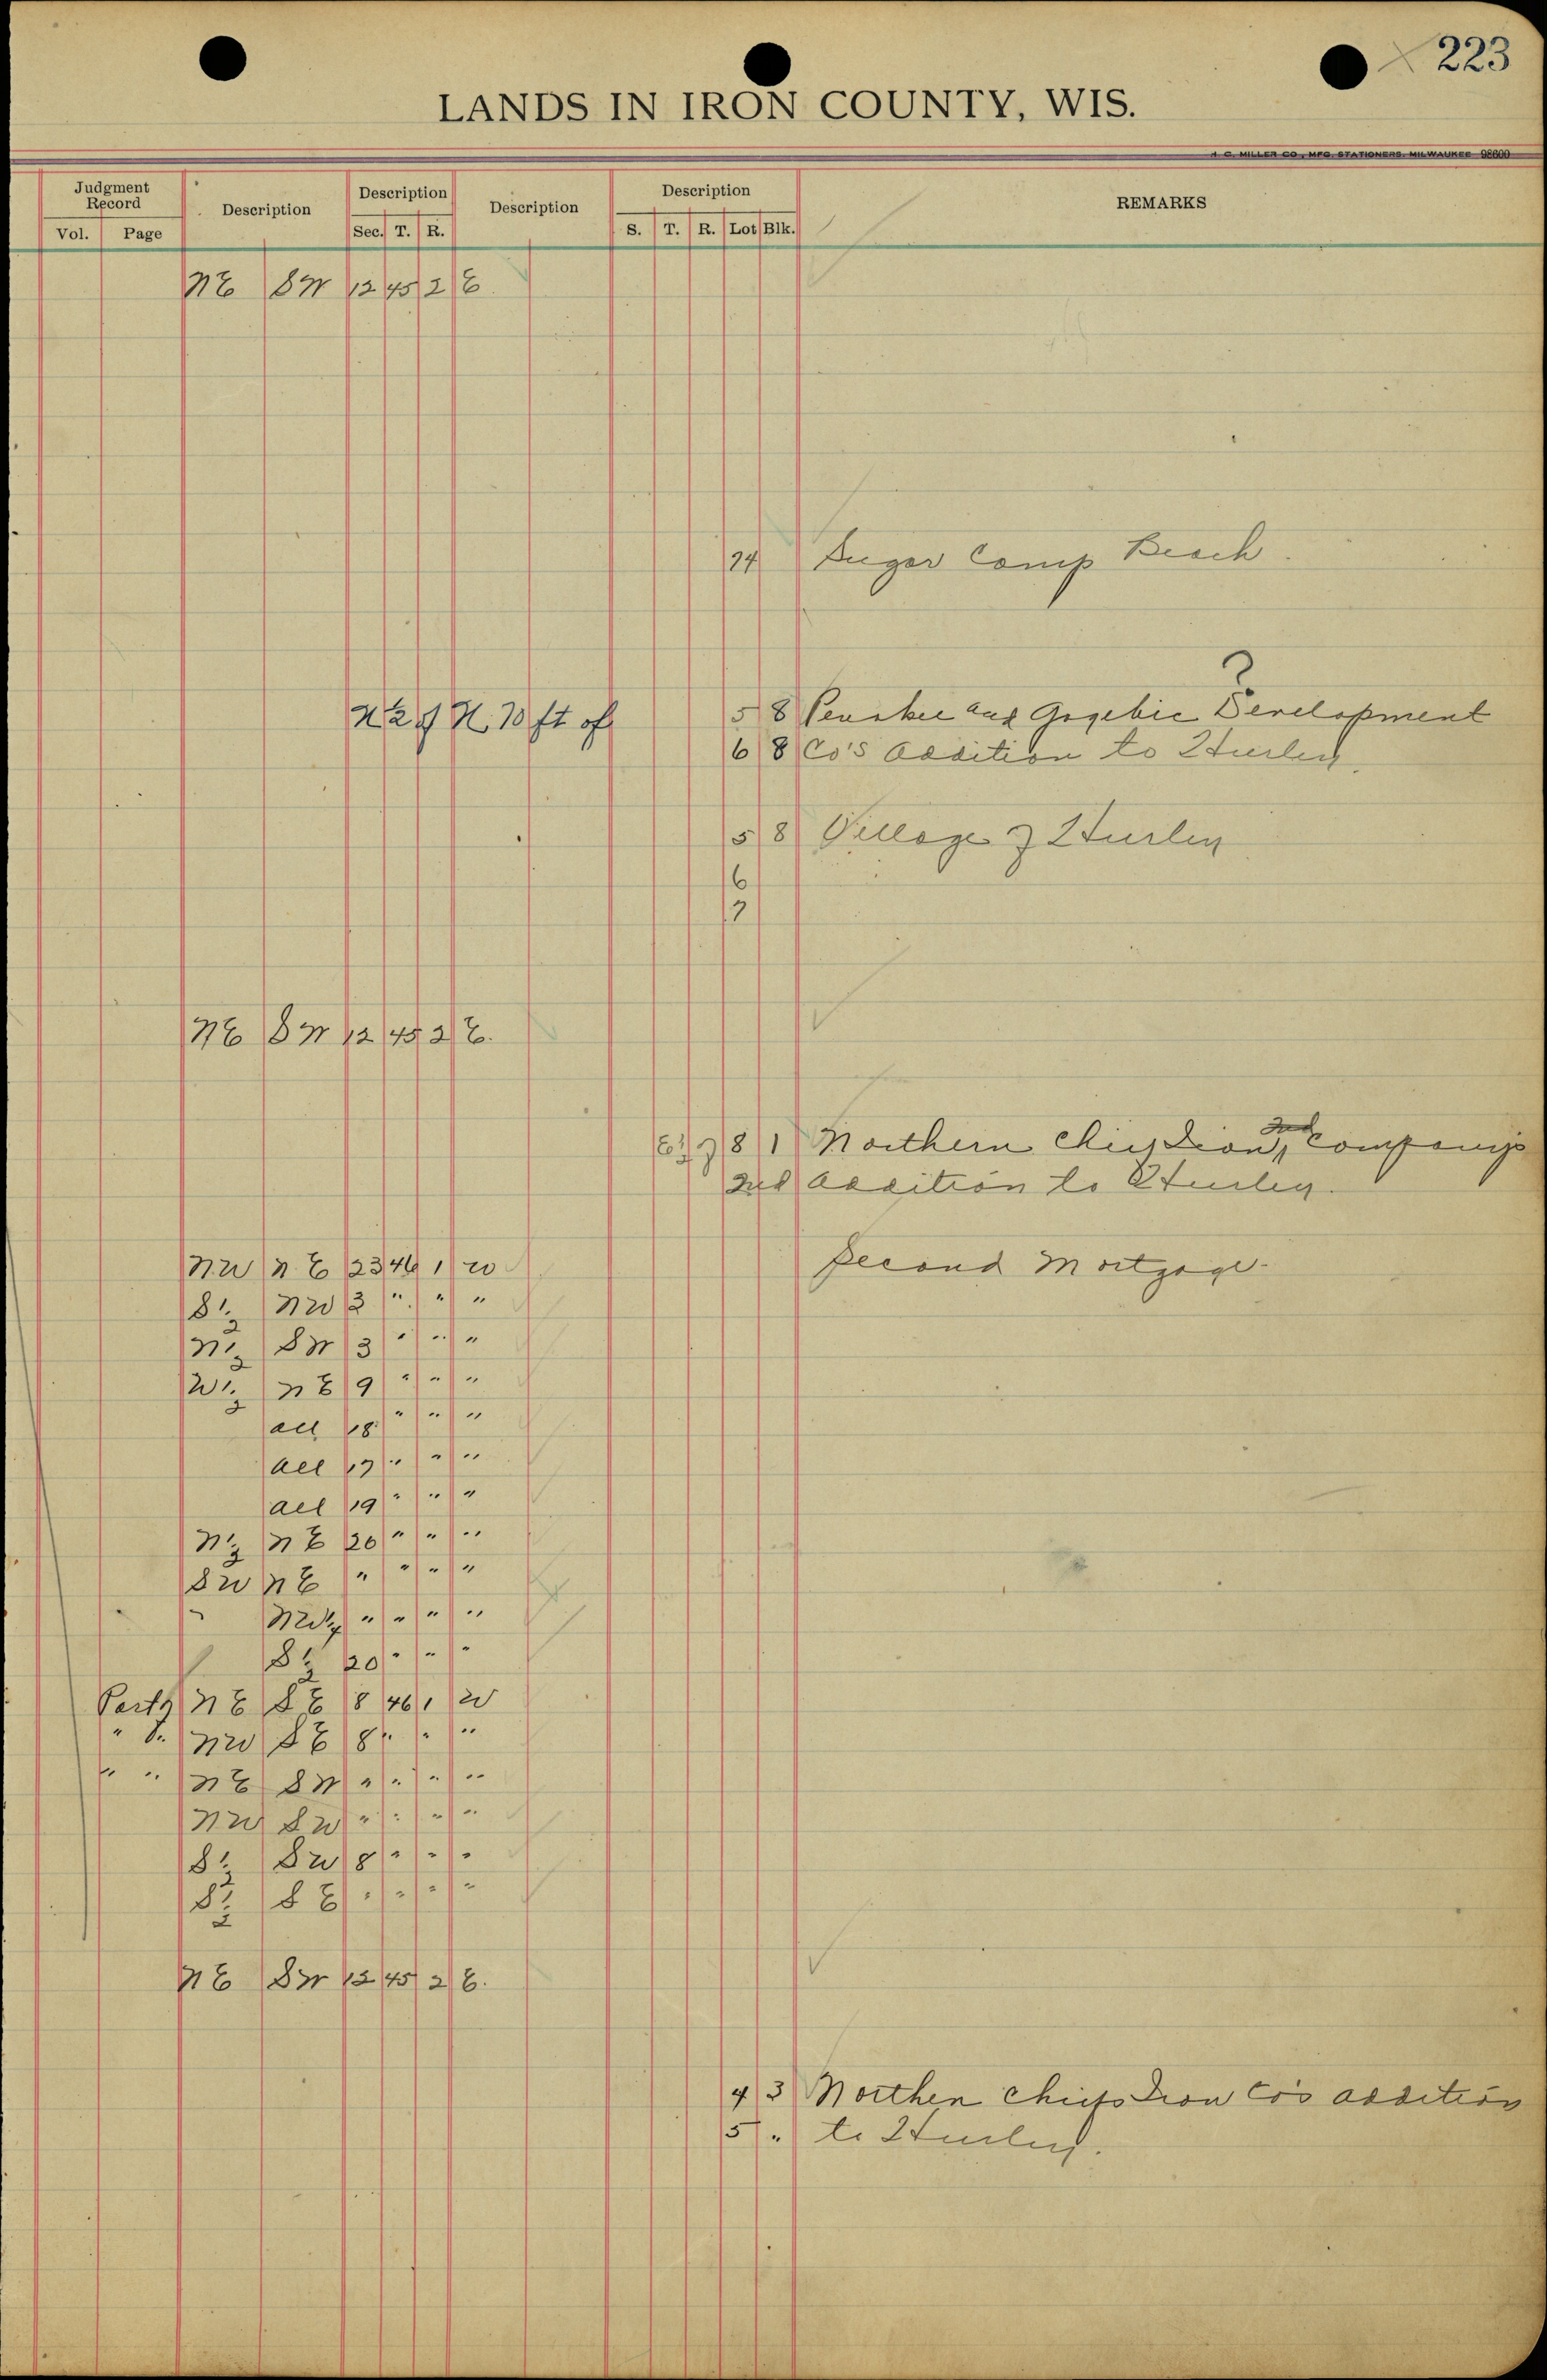 223
LANDS IN IRON COUNTY, WIS.
H. C. MILLER CO., MFG. STATIONERS, MILWAUKEE 98600
Judgment Record Description Description Description Description REMARKS
Vol. Page Sec. T. R. S. T. R. Lot Blk.
NE SW 12 45 2 E
24 Sugar Camp Beach.
N 2 of N. 70 ft of 5 8 Penokee and Gogebic Development
6 8 Co's addition to Hurley
5 8 Village of Hurley
6
7
NE SW 12 45 2 E.
8 1 Northern Chief Iron Company's
2nd addition to Hurley.
Second Mortgage
NW NE 23 46 1 W
S½ NW 3 " " "
N½ SW 3 " " "
W½ NE 9 " " "
all 18 " " "
all 17 " " "
all 19 " " "
N½ NE 20 " " "
SW NE " " " "
" NW¼ " " " "
S½ 20 " " "
Part of NE SE 8 46 1 W
" S. NW SE 8 " " "
" " NE SW " " " "
NW SW " " " "
S½ SW 8 " " "
S½ SE " " " "
NE SW 12 45 2 E.
4 3 Northen Chief Iron Co's addition
5 " to Hurley.